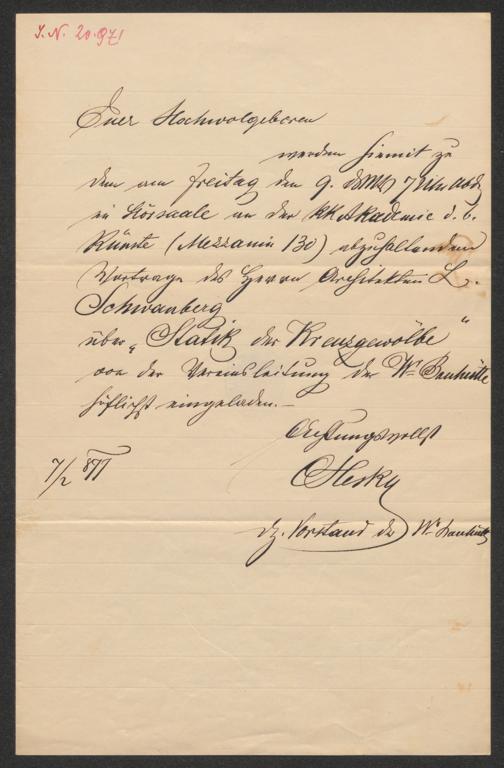 I. N. 20.971
Euer Hochwolgeboren
werden hiemit zu
dem am Freitag den 9. d. Mts 7 Uhr Abds
im Hörsaale an der k. k. Akademie d. b.
Künste (Mezzanin 130) abzuhaltenden
Vortrage des Herrn Architekten L.
Schwanberg
über „Statik der Kreuzgewölbe“
von der Vereinsleitung der Wr Bauhütte
höflichst eingeladen.–
Achtungsvollst
7/2 877
Hesky
dz. Vorstand der Wr Bauhütte